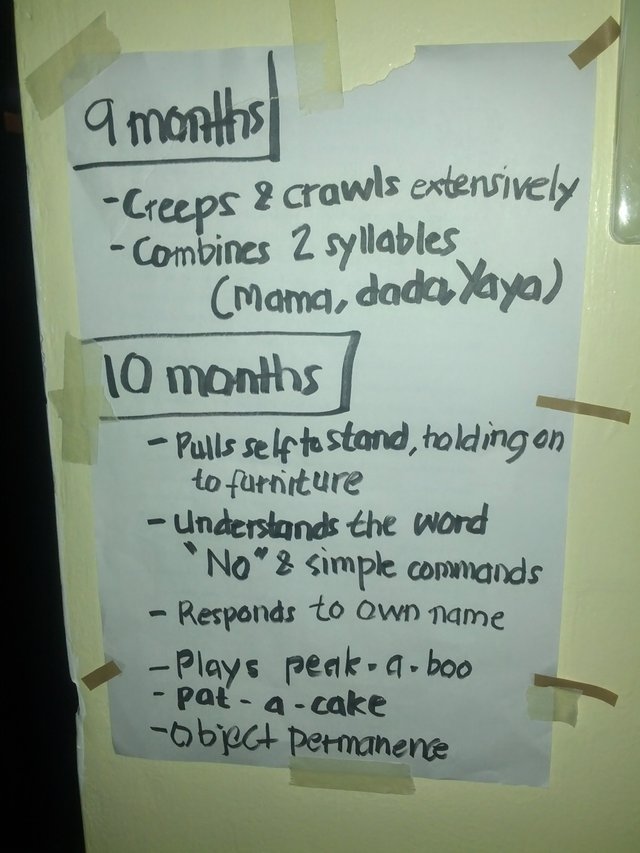 9 months
- Creeps & crawls extensively
- Combines 2 syllables
(mama, dada, Yaya)
10 months
- Pulls self to stand, holding on
to furniture
- Understands the word
"No" & simple commands
- Responds to own name
- Plays peak-a-boo
- pat-a-cake
- Object permanence